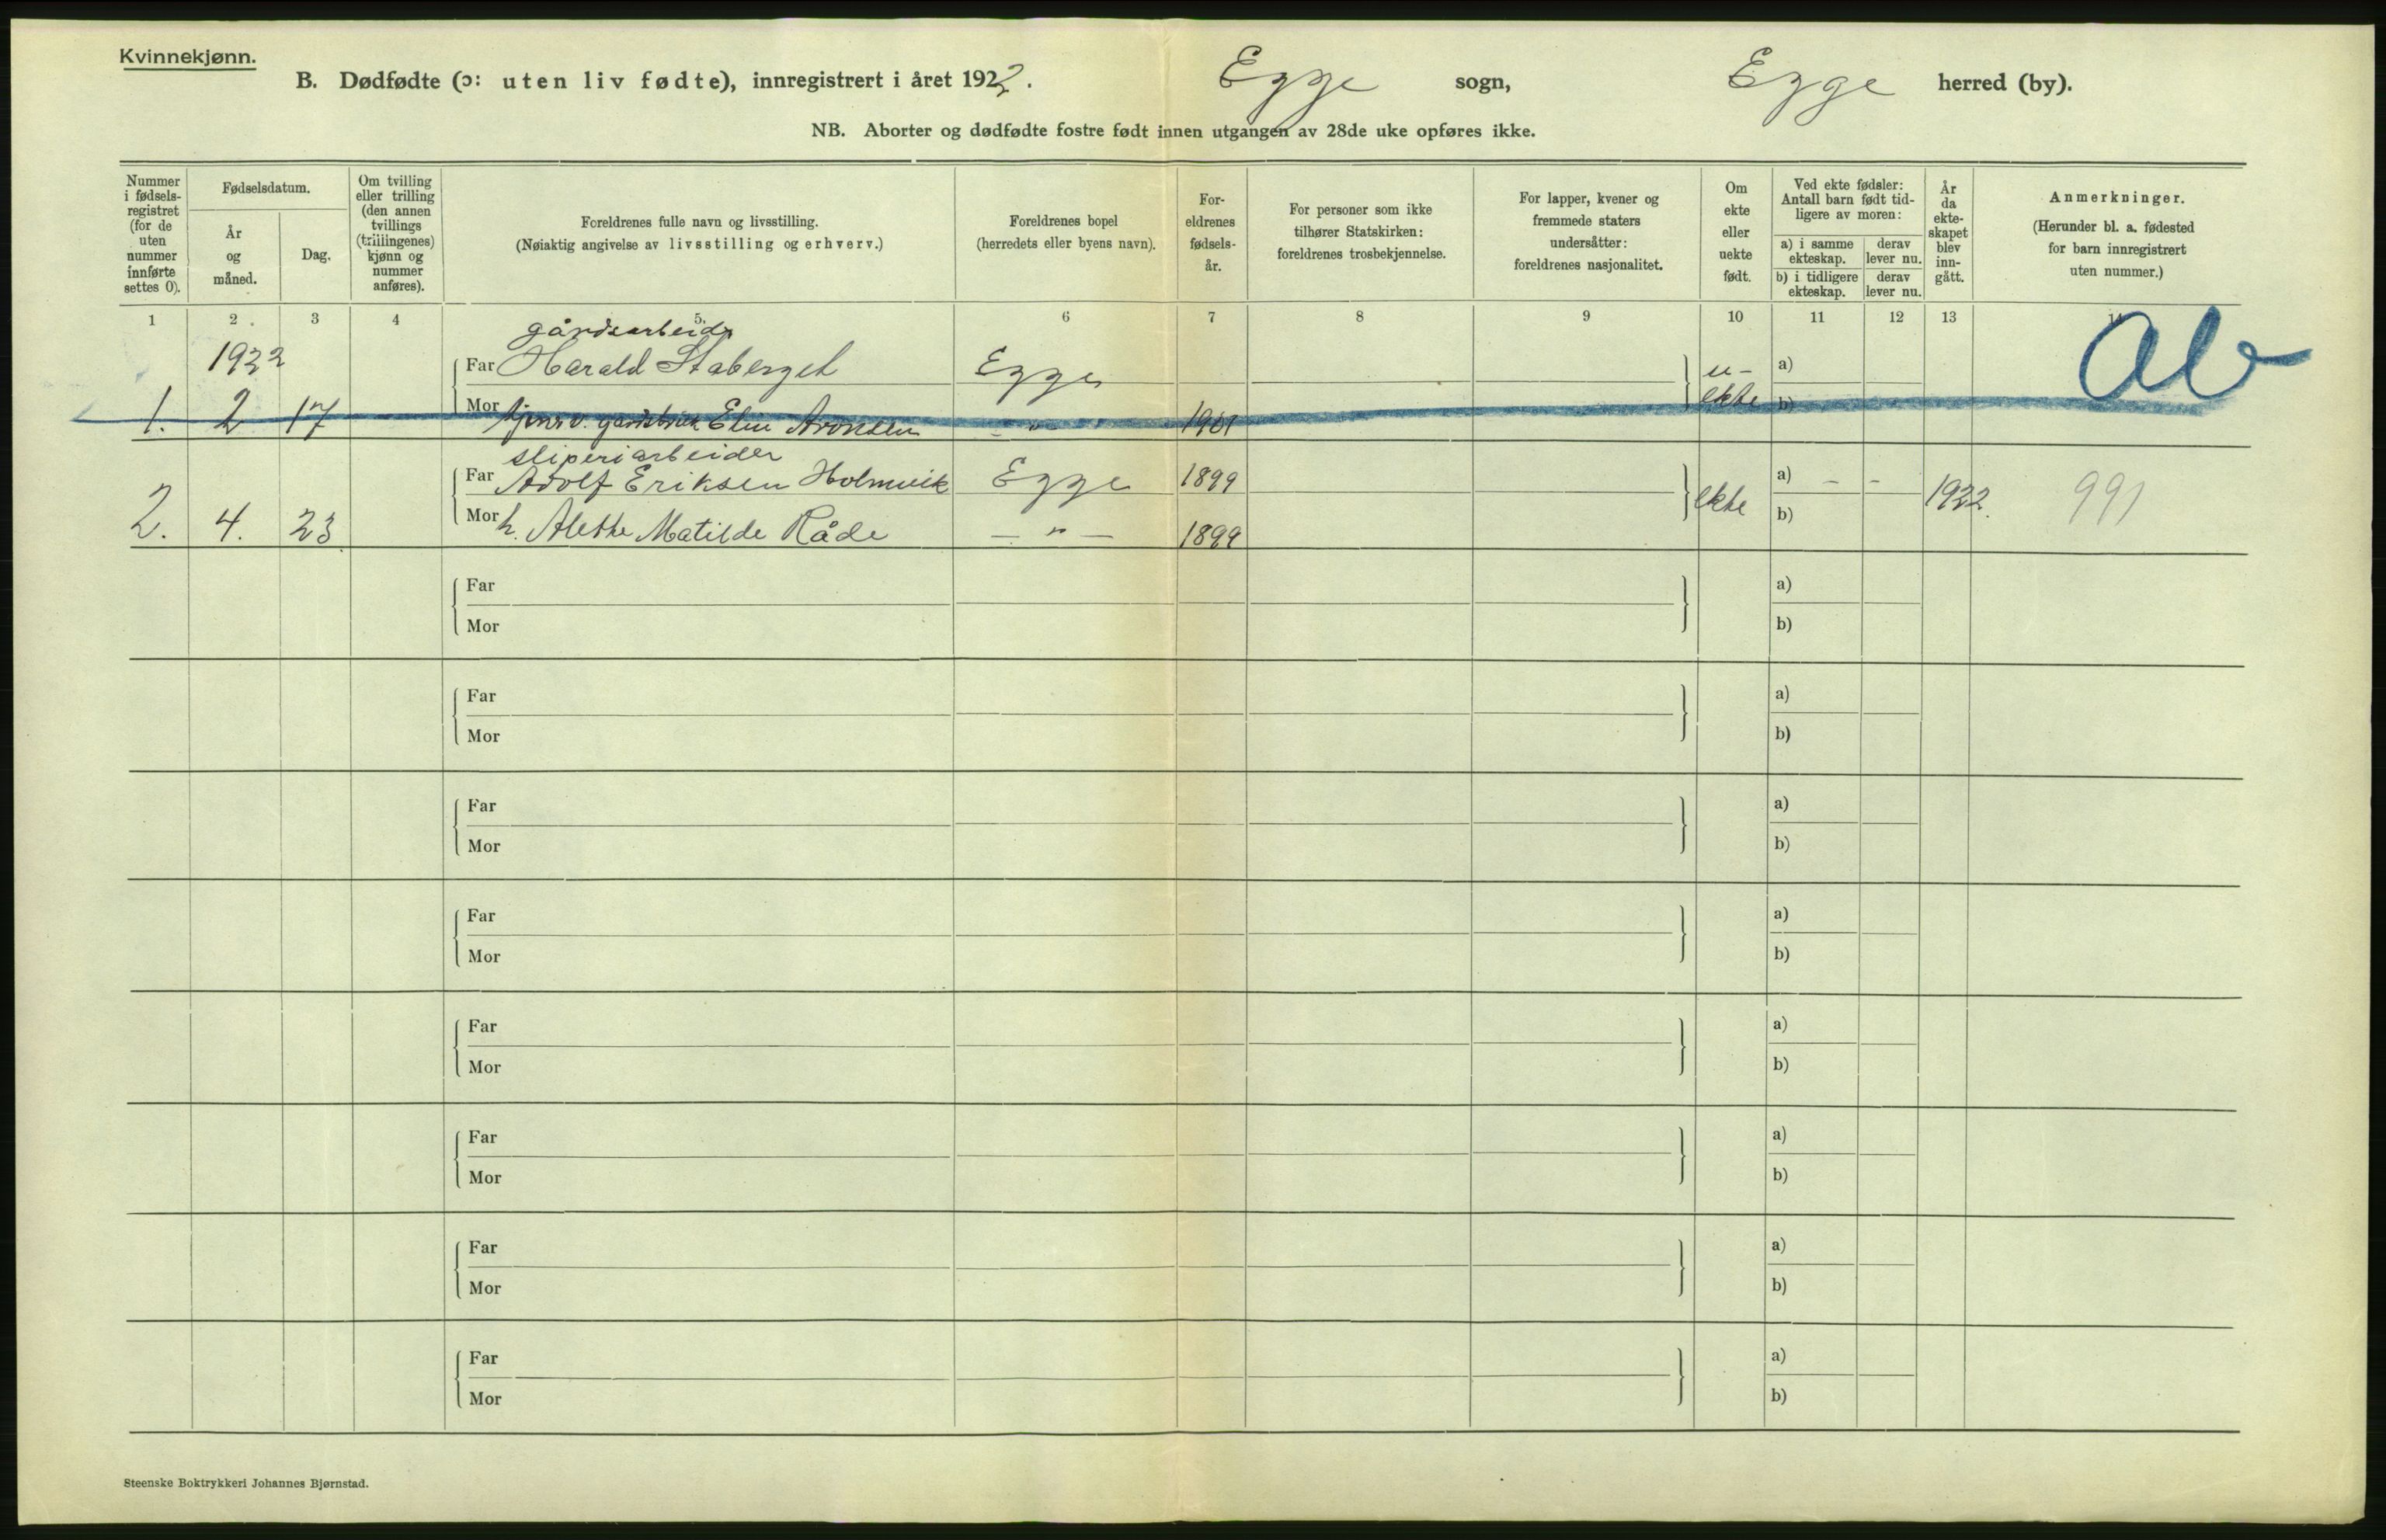 Kvinnekjønn.
B. Dødfødte (ɔ: uten liv fødte), innregistrert i året 1922. Egge sogn, Egge herred (by).
NB. Aborter og dødfødte fostre født innen utgangen av 28de uke opføres ikke.
Nummer i fødsels-registret (for de uten nummer innførte settes 0).
Fødselsdatum.
År og måned.
Dag.
Om tvilling eller trilling (den annen tvillings (trillingenes) kjønn og nummer anføres).
Foreldrenes fulle navn og livsstilling.
(Nøiaktig angivelse av livsstilling og erhverv.)
Foreldrenes bopel
(herredets eller byens navn).
For-eldrenes fødsels-år.
For personer som ikke tilhører Statskirken: foreldrenes trosbekjennelse.
For lapper, kvener og fremmede staters undersåtter: foreldrenes nasjonalitet.
Om ekte eller uekte født.
Ved ekte fødsler: Antall barn født tid-ligere av moren:
a) i samme ekteskap. derav lever nu.
b) i tidligere ekteskap. derav lever nu.
År da ekte-skapet blev inn-gått.
Anmerkninger.
(Herunder bl. a. fødested for barn innregistrert uten nummer.)
1 2 3 4 5. 6 7 8 9 10 11 12 13 14
gårdsarbeidr
1922 Far Harald Staberget Egge u- a) Ab
1. 2 17 Mor Elin Aronsen — " — 1901 ekte b)
sliperiarbeider
Far Adolf Eriksen Holmvik Egge 1899 a) – –
2. 4. 23 Mor h. Alethe Matilde Råde — " — 1899 ekte b) 1922. 991
Far a)
Mor b)
Far a)
Mor b)
Far a)
Mor b)
Far a)
Mor b)
Far a)
Mor b)
Far a)
Mor b)
Far a)
Mor b)
Far a)
Mor b)
Steenske Boktrykkeri Johannes Bjørnstad.